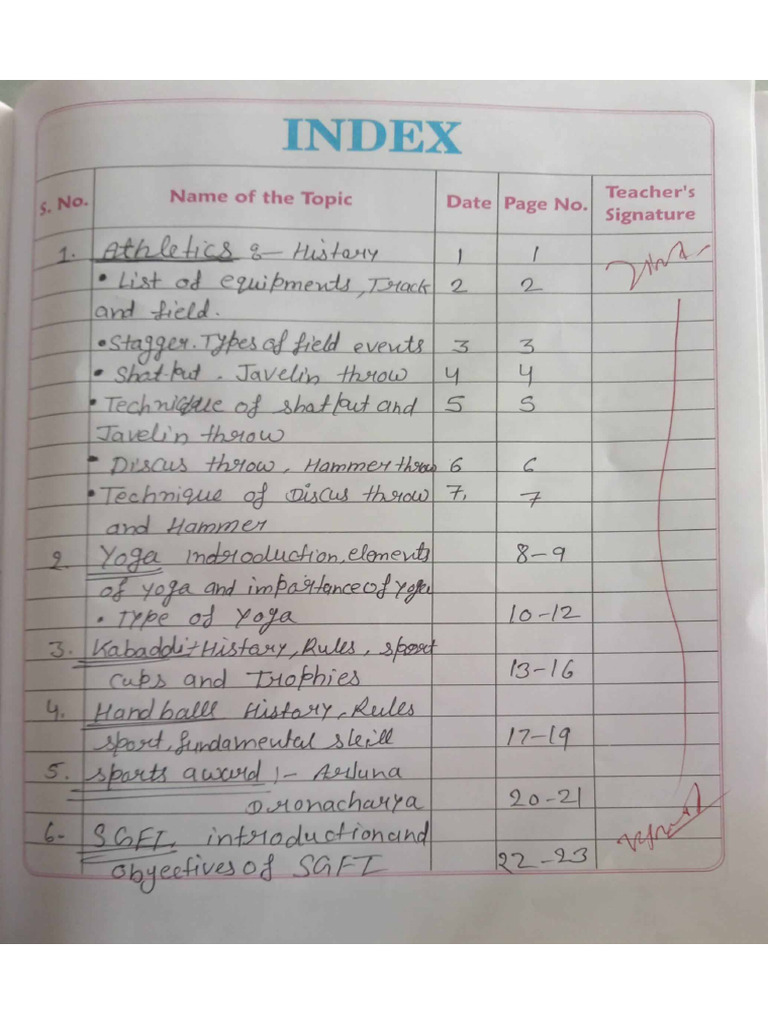 INDEX
S. No. Name of the Topic Date Page No. Teacher's Signature
1. Athletics :- History 1 1
• List of equipments, Track 2 2
and field.
• Stagger. Types of field events 3 3
• Shot-put . Javelin throw 4 4
• Technique of shotput and 5 5
Javelin throw
• Discus throw, Hammer throw 6 6
• Technique of Discus throw 7. 7
and Hammer
2. Yoga Indroduction, elements 8-9
of yoga and importance of Yoga
• Type of Yoga 10-12
3. Kabaddi:- History, Rules, sport
cups and Trophies 13-16
4. Handballs History, Rules
sport, fundamental skill 17-19
5. sports award :- Arjuna
Dronacharya 20-21
6- SGFI, introduction and
obyectives of SGFI 22-23